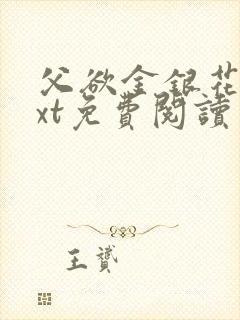 父欲金銀花
xt免費閱讀
王贇